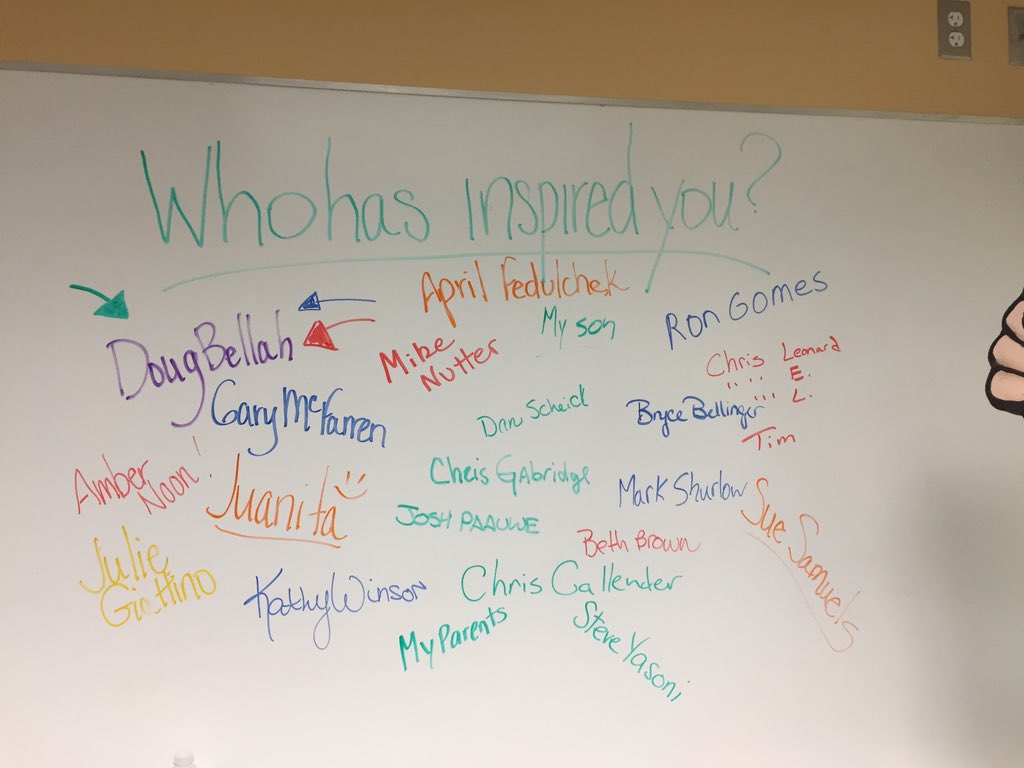 Who has inspired you?
April Fedulchek
My son
Ron Gomes
Doug Bellah
Mike
Nutter
Chris Leonard
" " E.
" " L.
Tim
Gary McFarren
Dan Scheick
Bryce Bellinger
Amber
Noon!
Juanita
Chris GAbridge
Mark Shurlow
Sue Samuels
JOSH PAAUWE
Beth Brown
Julie
Kathy Winsor
Chris Callender
My Parents
Steve Yasoni